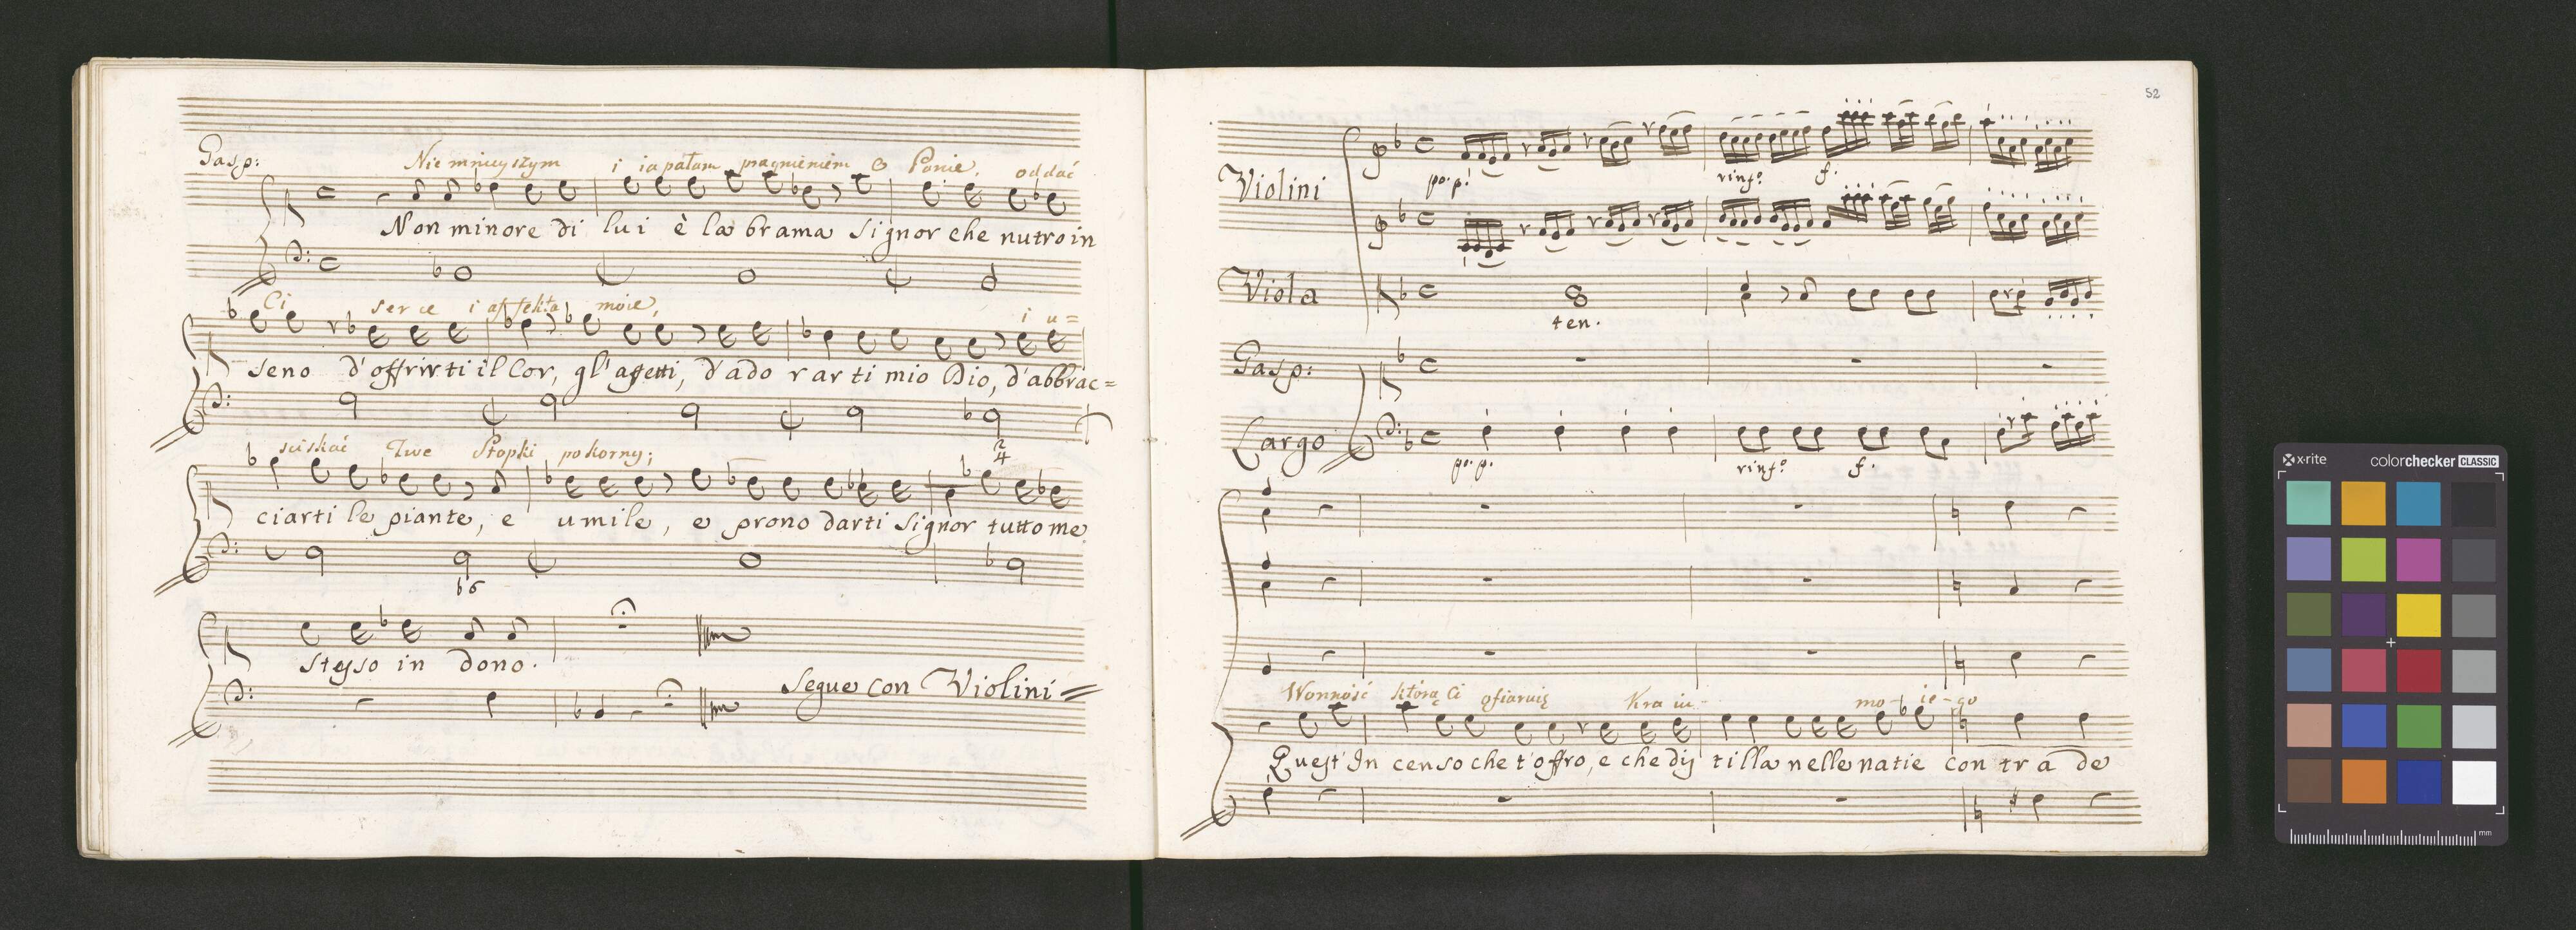 Gasp: Nie mnieyszym i ia pałam pragnieniem O Panie, oddać
Non minore di lui è la brama Signor che nutro in
Ci serce i affekta moie, i u=
seno d'offrirti il Cor, gl'affetti, d'ado rar ti mio Dio, d'abbrac=
sciskać Twe Stopki pokorny;
2
4
ciarti le piante, e umile, e prono darti Signor tutto me
b6
stesso in dono.
Segue con Violini
52
Violini
po. p. rinfo. f.
Viola
ten.
Gasp:
Largo
po. p. rinfo. f.
Wonność którą Ci ofiaruię Kra iu- mo- ie-go
Quest' In censo che t'offro, e che dis tilla nelle natie con tra de
x-rite colorchecker CLASSIC
mm